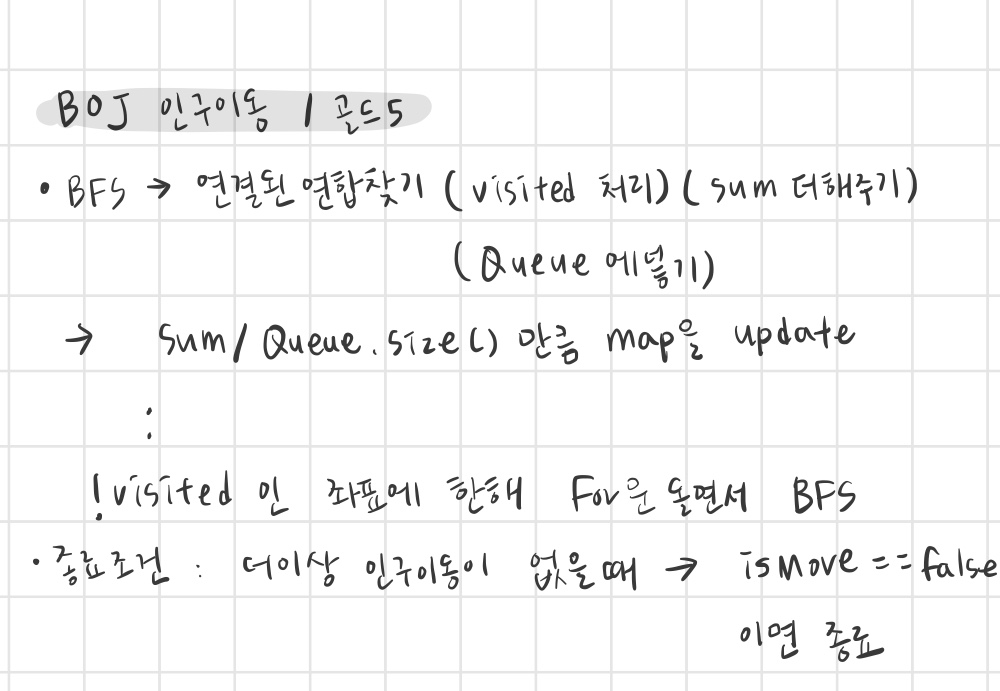 BOJ 인구이동 | 골드5
• BFS → 연결된 연합찾기 (visited 처리) (sum 더해주기)
(Queue에넣기)
→ sum/Queue.size() 만큼 map을 update
:
!visited 인 좌표에 한해 For문 돌면서 BFS
• 종료조건 : 더이상 인구이동이 없을때 → isMove == false
이면 종료